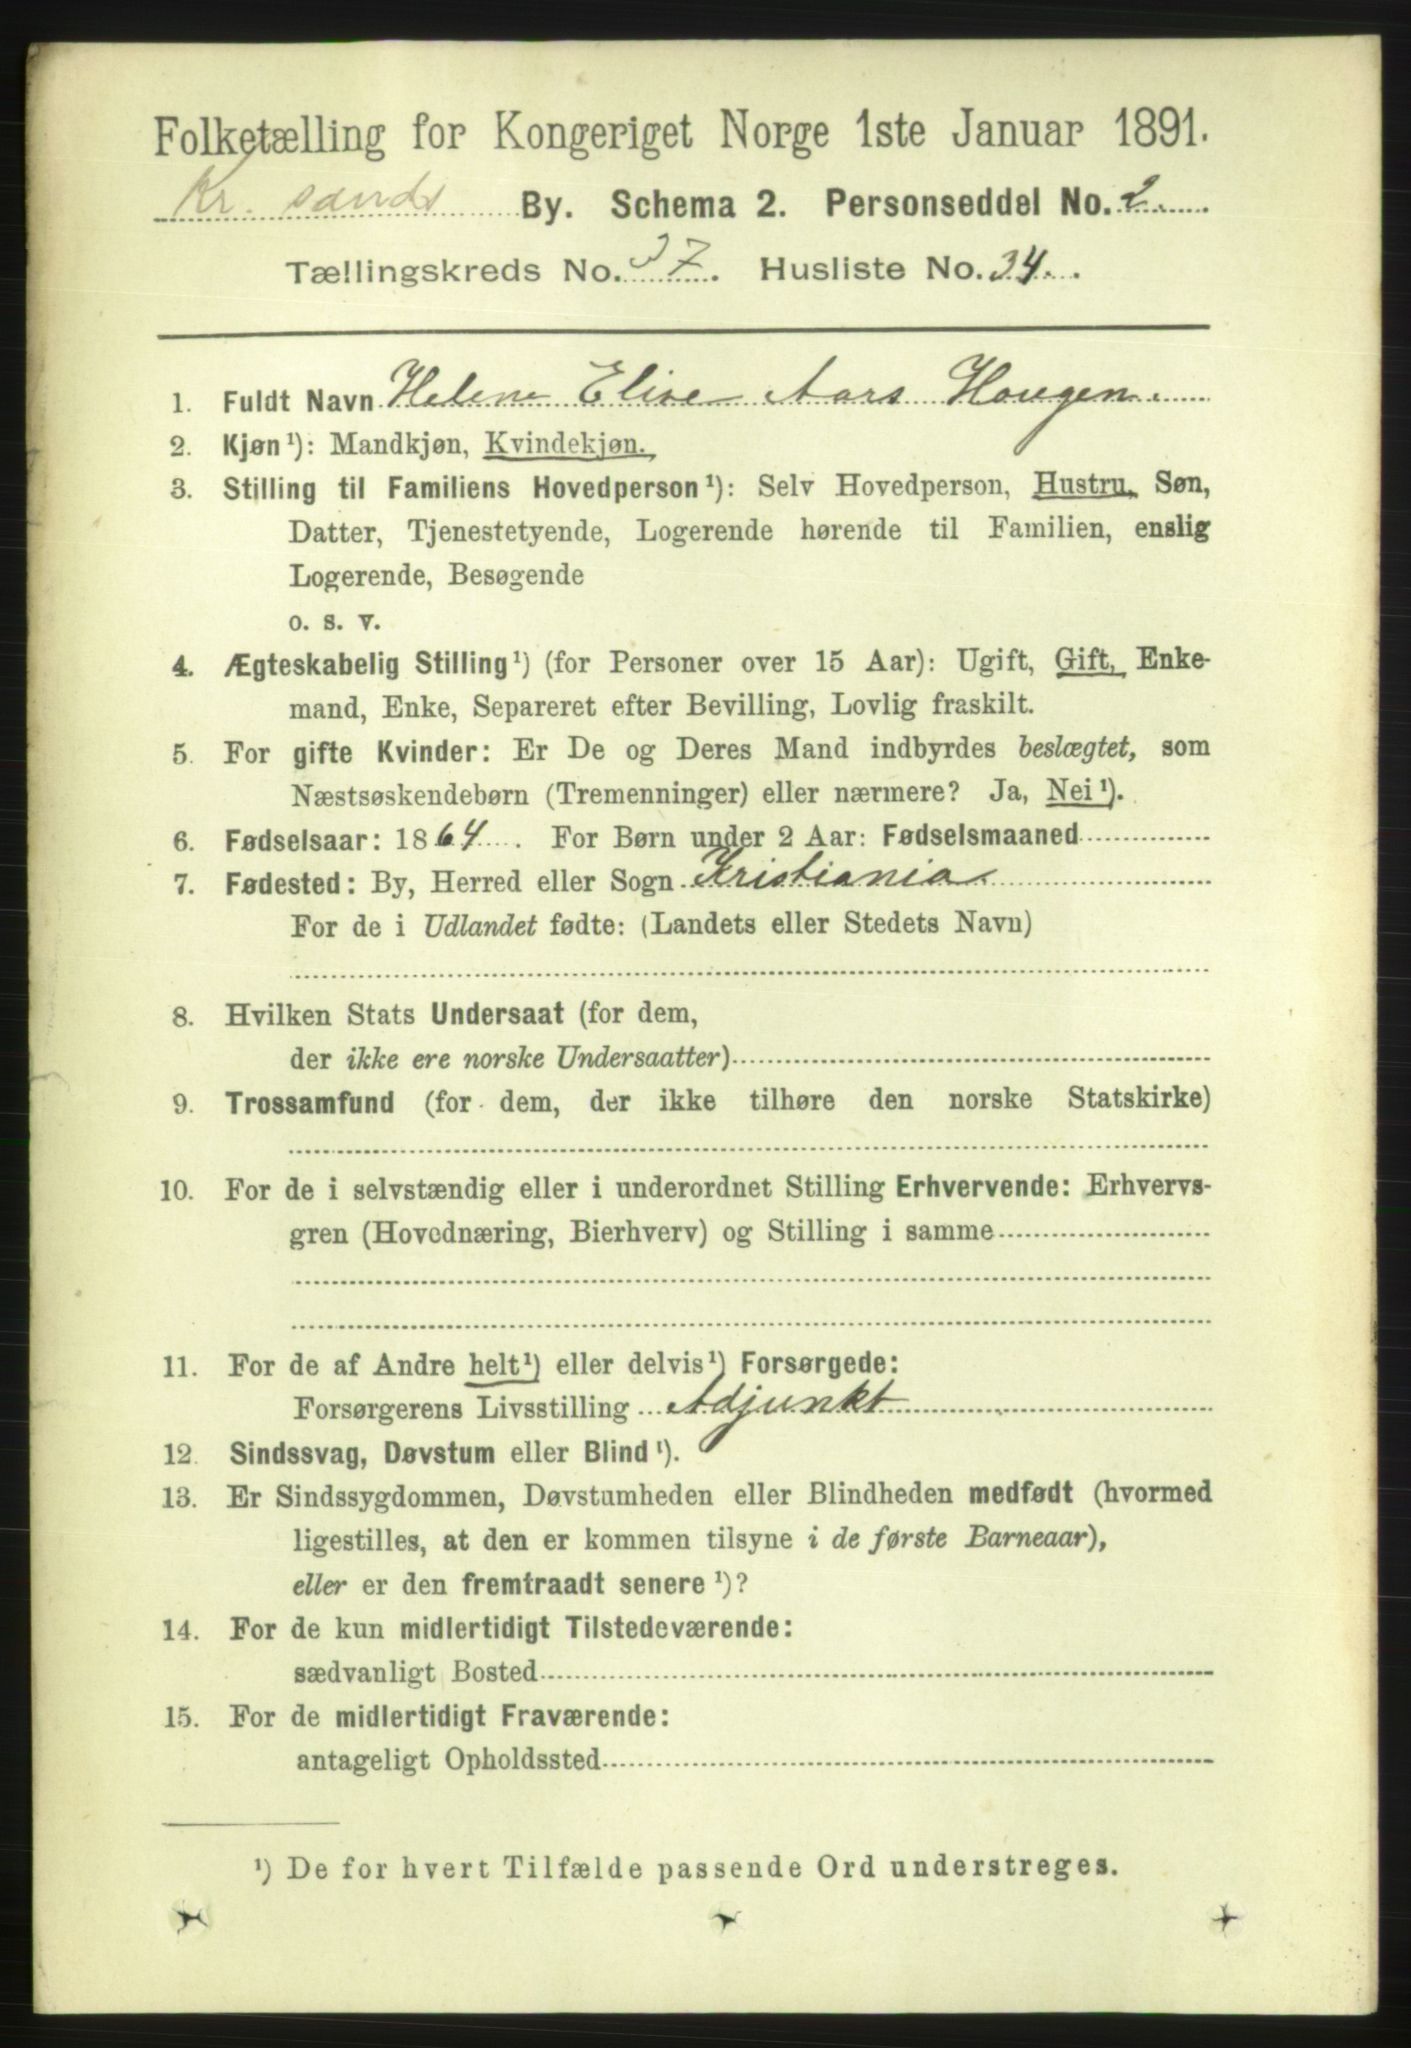 Folketælling for Kongeriget Norge 1ste Januar 1891.
Kr. sands By. Schema 2. Personseddel No. 2.
Tællingskreds No. 37. Husliste No. 34.
1. Fuldt Navn Helene Elise Aars Hougen.
2. Kjøn ¹): Mandkjøn, Kvindekjøn.
3. Stilling til Familiens Hovedperson ¹): Selv Hovedperson, Hustru, Søn,
Datter, Tjenestetyende, Logerende hørende til Familien, enslig
Logerende, Besøgende
o. s. v.
4. Ægteskabelig Stilling ¹) (for Personer over 15 Aar): Ugift, Gift, Enke-
mand, Enke, Separeret efter Bevilling, Lovlig fraskilt.
5. For gifte Kvinder: Er De og Deres Mand indbyrdes beslægtet, som
Næstsøskendebørn (Tremenninger) eller nærmere? Ja, Nei ¹).
6. Fødselsaar: 1864. For Børn under 2 Aar: Fødselsmaaned
7. Fødested: By, Herred eller Sogn Kristiania
For de i Udlandet fødte: (Landets eller Stedets Navn)
8. Hvilken Stats Undersaat (for dem,
der ikke ere norske Undersaatter)
9. Trossamfund (for dem, der ikke tilhøre den norske Statskirke)
10. For de i selvstændig eller i underordnet Stilling Erhvervende: Erhvervs-
gren (Hovednæring, Bierhverv) og Stilling i samme
11. For de af Andre helt ¹) eller delvis ¹) Forsørgede:
Forsørgerens Livsstilling Adjunkt
12. Sindssvag, Døvstum eller Blind ¹).
13. Er Sindssygdommen, Døvstumheden eller Blindheden medfødt (hvormed
ligestilles, at den er kommen tilsyne i de første Barneaar),
eller er den fremtraadt senere ¹)?
14. For de kun midlertidigt Tilstedeværende:
sædvanligt Bosted
15. For de midlertidigt Fraværende:
antageligt Opholdssted
¹) De for hvert Tilfælde passende Ord understreges.